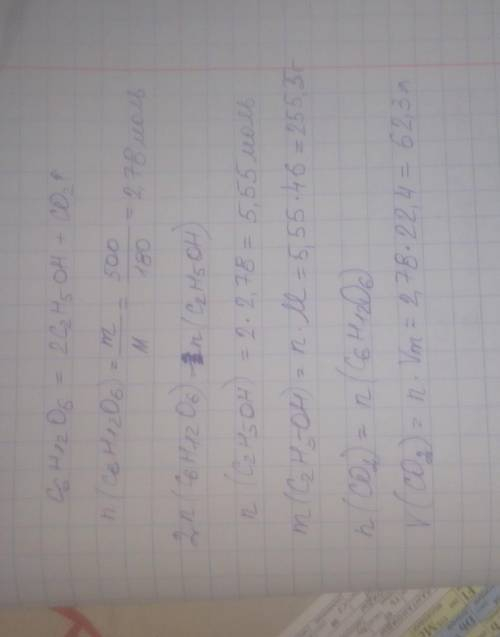 C6H12O6 = 2C2H5OH + CO2↑
n(C6H12O6) = m/M = 500/180 = 2,78 моль
2n(C6H12O6) = n(C2H5OH)
n(C2H5OH) = 2·2,78 = 5,55 моль
m(C2H5OH) = n·M = 5,55·46 = 255,3г
n(CO2) = n(C6H12O6)
V(CO2) = n·Vm = 2,78·22,4 = 62,3л